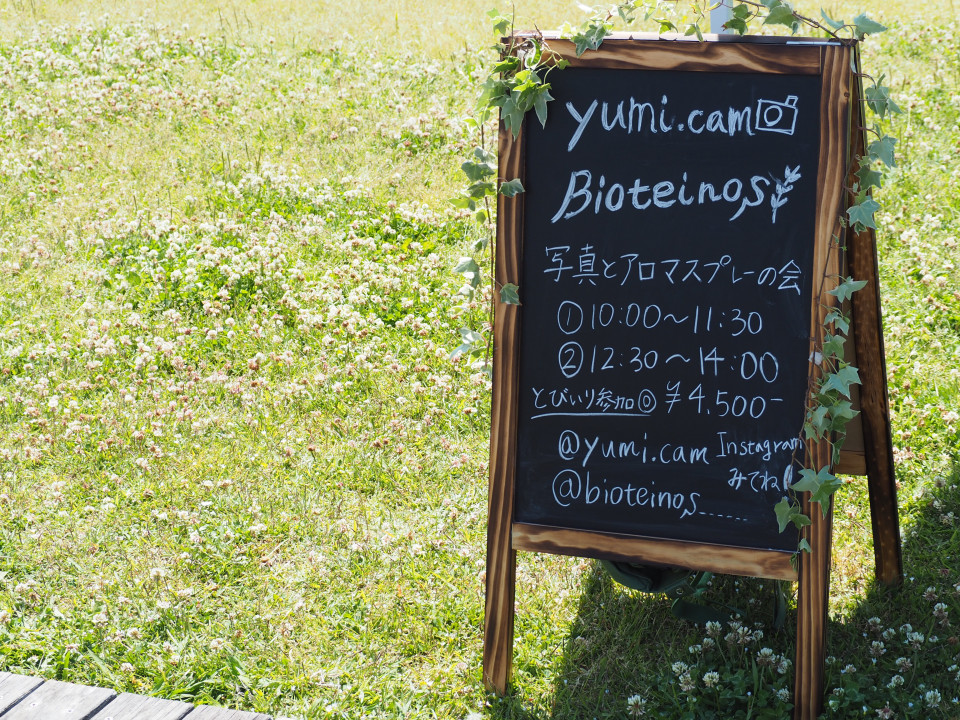 yumi.cam
Bioteinos
写真とアロマスプレーの会
①10:00〜11:30
②12:30〜14:00
とびいり参加◎ ¥4,500-
@yumi.cam Instagram
@bioteinos______ みてね!!